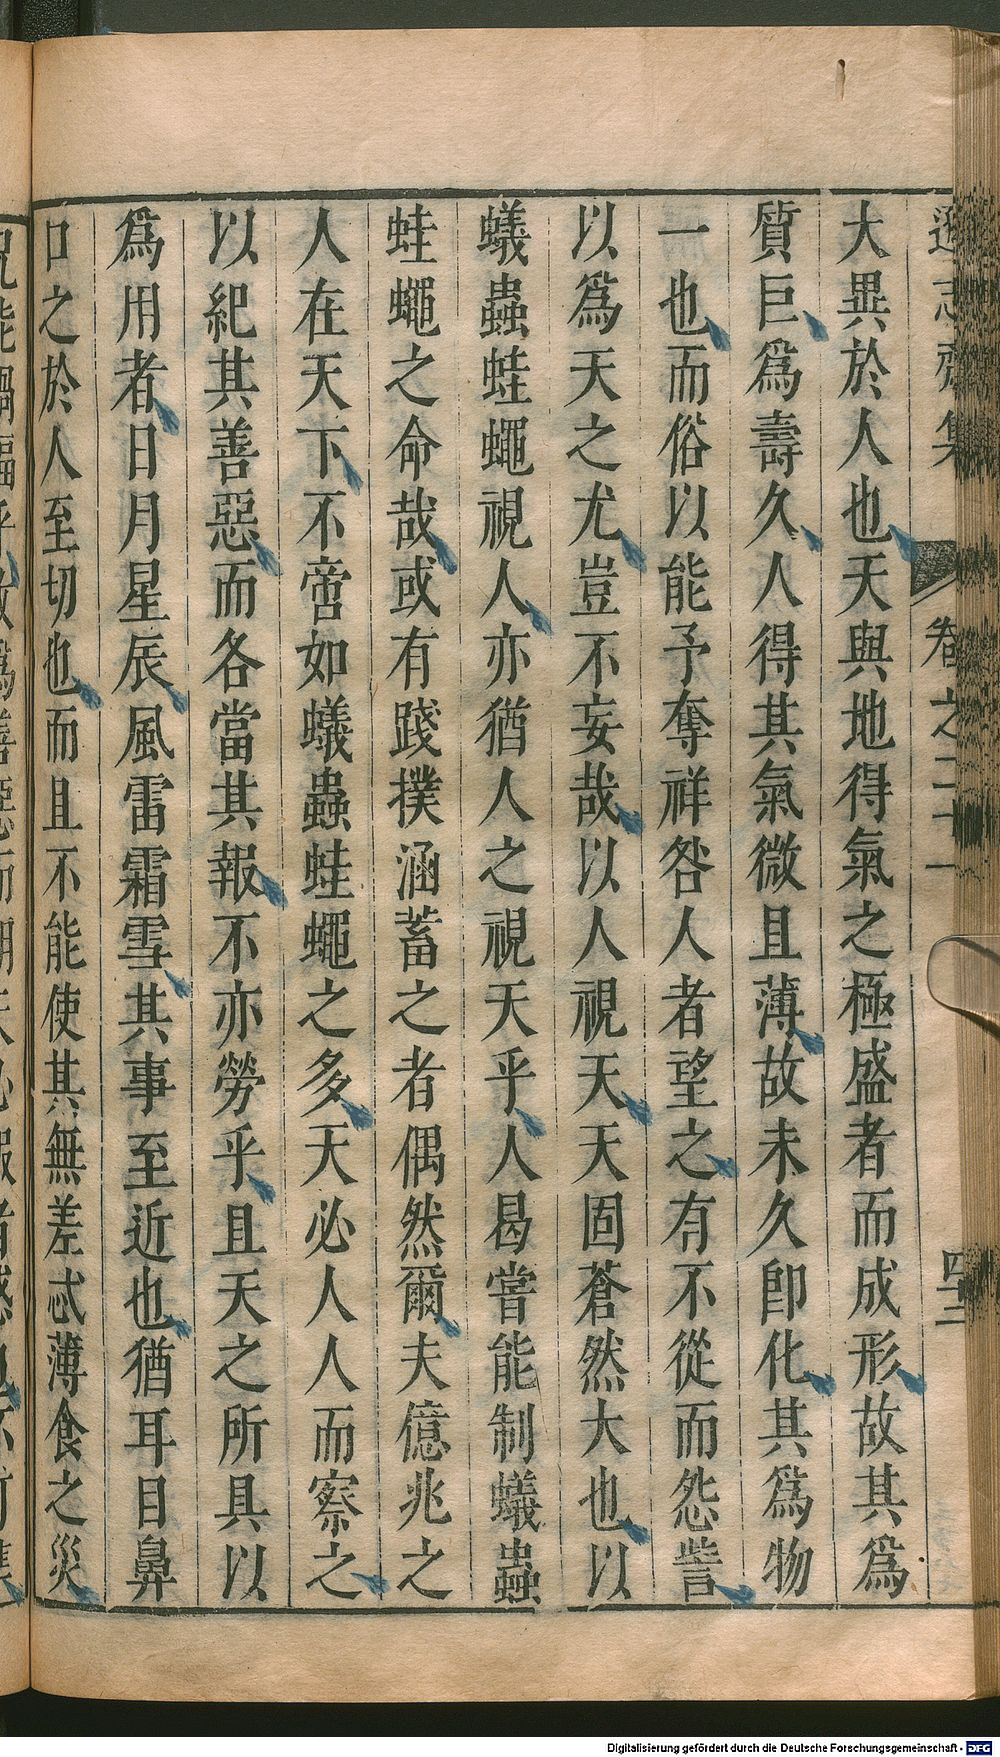 遜志齋集
卷之二十一
大異於人也天與地得氣之極盛者而成形故其爲
質巨爲壽久人得其氣微且薄故未久卽化其爲物
一也而俗以能予奪祥咎人者望之有不從而怨訾
以爲天之尤豈不妄哉以人視天天固蒼然大也以
蟻蟲蛙蠅視人亦猶人之視天乎人曷嘗能制蟻蟲
蛙蠅之命哉或有踐撲涵蓄之者偶然爾夫億兆之
人在天下不啻如蟻蟲蛙蠅之多天必人人而察之
以紀其善惡而各當其報不亦勞乎且天之所具以
爲用者日月星辰風雷霜雪其事至近也猶耳目鼻
口之於人至切也而且不能使其無差忒薄食之災
Digitalisierung gefördert durch die Deutsche Forschungsgemeinschaft - DFG